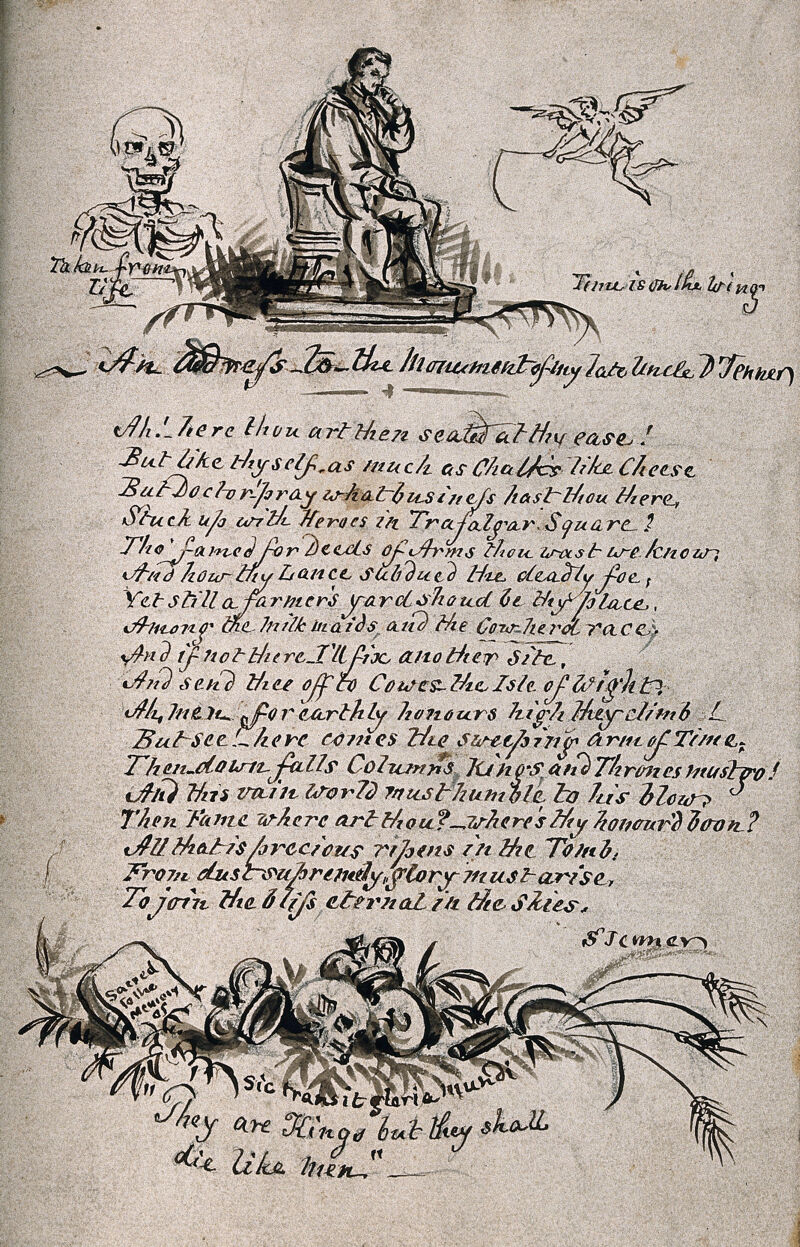 Taken from
Life
Time is on the Wing
An Address to the Monument of my late Uncle Dr Jenner
Ah! here thou art then seated at thy ease!
But like thyself as much as Chalk's like Cheese
But Doctor! pray what business hast thou there,
Stuck up with Heroes in Trafalgar Square?
Tho' famed for Deeds of Arms thou wast we know,
And how thy Lance subdued the deadly foe,
Yet still a farmer's yard shoud be thy place,
Among the Milk maids, and the Cow-herd race,
And if not there I'll fix another Site,
And send thee off to Cowes the Isle of Wight.
Ah, men for earthly honours high they climb!
But see! here comes the sweeping arm of Time,
Then down falls Columns, Kings and Thrones must go!
And this vain world must humble to his blow,
Then Fame where art thou? where's thy honour'd boon?
All that is precious ripens in the Tomb,
From dust supremely, glory must arise,
To join the bliss eternal in the Skies.
S Jenner
Sacred
to the
Memory
of
Sic transit gloria Mundi
"They are Kings but they shall
die like Men"